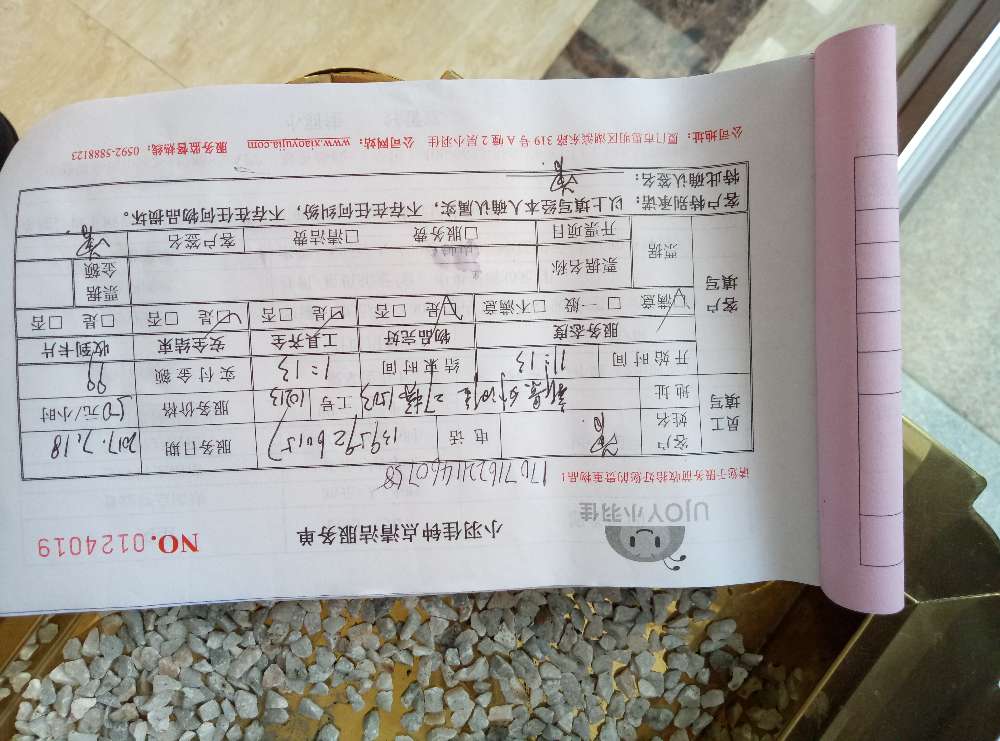 UJOY小羽佳
小羽佳钟点清洁服务单
NO.0124019
请您于服务前收拾好您的贵重物品!
员工填写 客户姓名 电话 服务日期 2017.7.18
地址 工号 10213 服务价格 50元/小时
开始时间 11:13 结束时间 1:13 实付金额 99
客户填写 服务态度 物品完好 工具齐全 安全结束 收到卡片
☑满意 □一般 □不满意 ☑是 □否 ☑是 □否 ☑是 □否 □是 □否
票据 票据名称 票据金额
开票项目 □服务费 □清洁费 客户签名
客户特别承诺:以上填写经本人确认属实,不存在任何纠纷,不存在任何物品损坏。
特此确认签名:
公司地址:厦门市思明区湖滨东路319号A幢2层小羽佳 公司网站:www.xiaoyujia.com 服务监督热线:0592-5888123